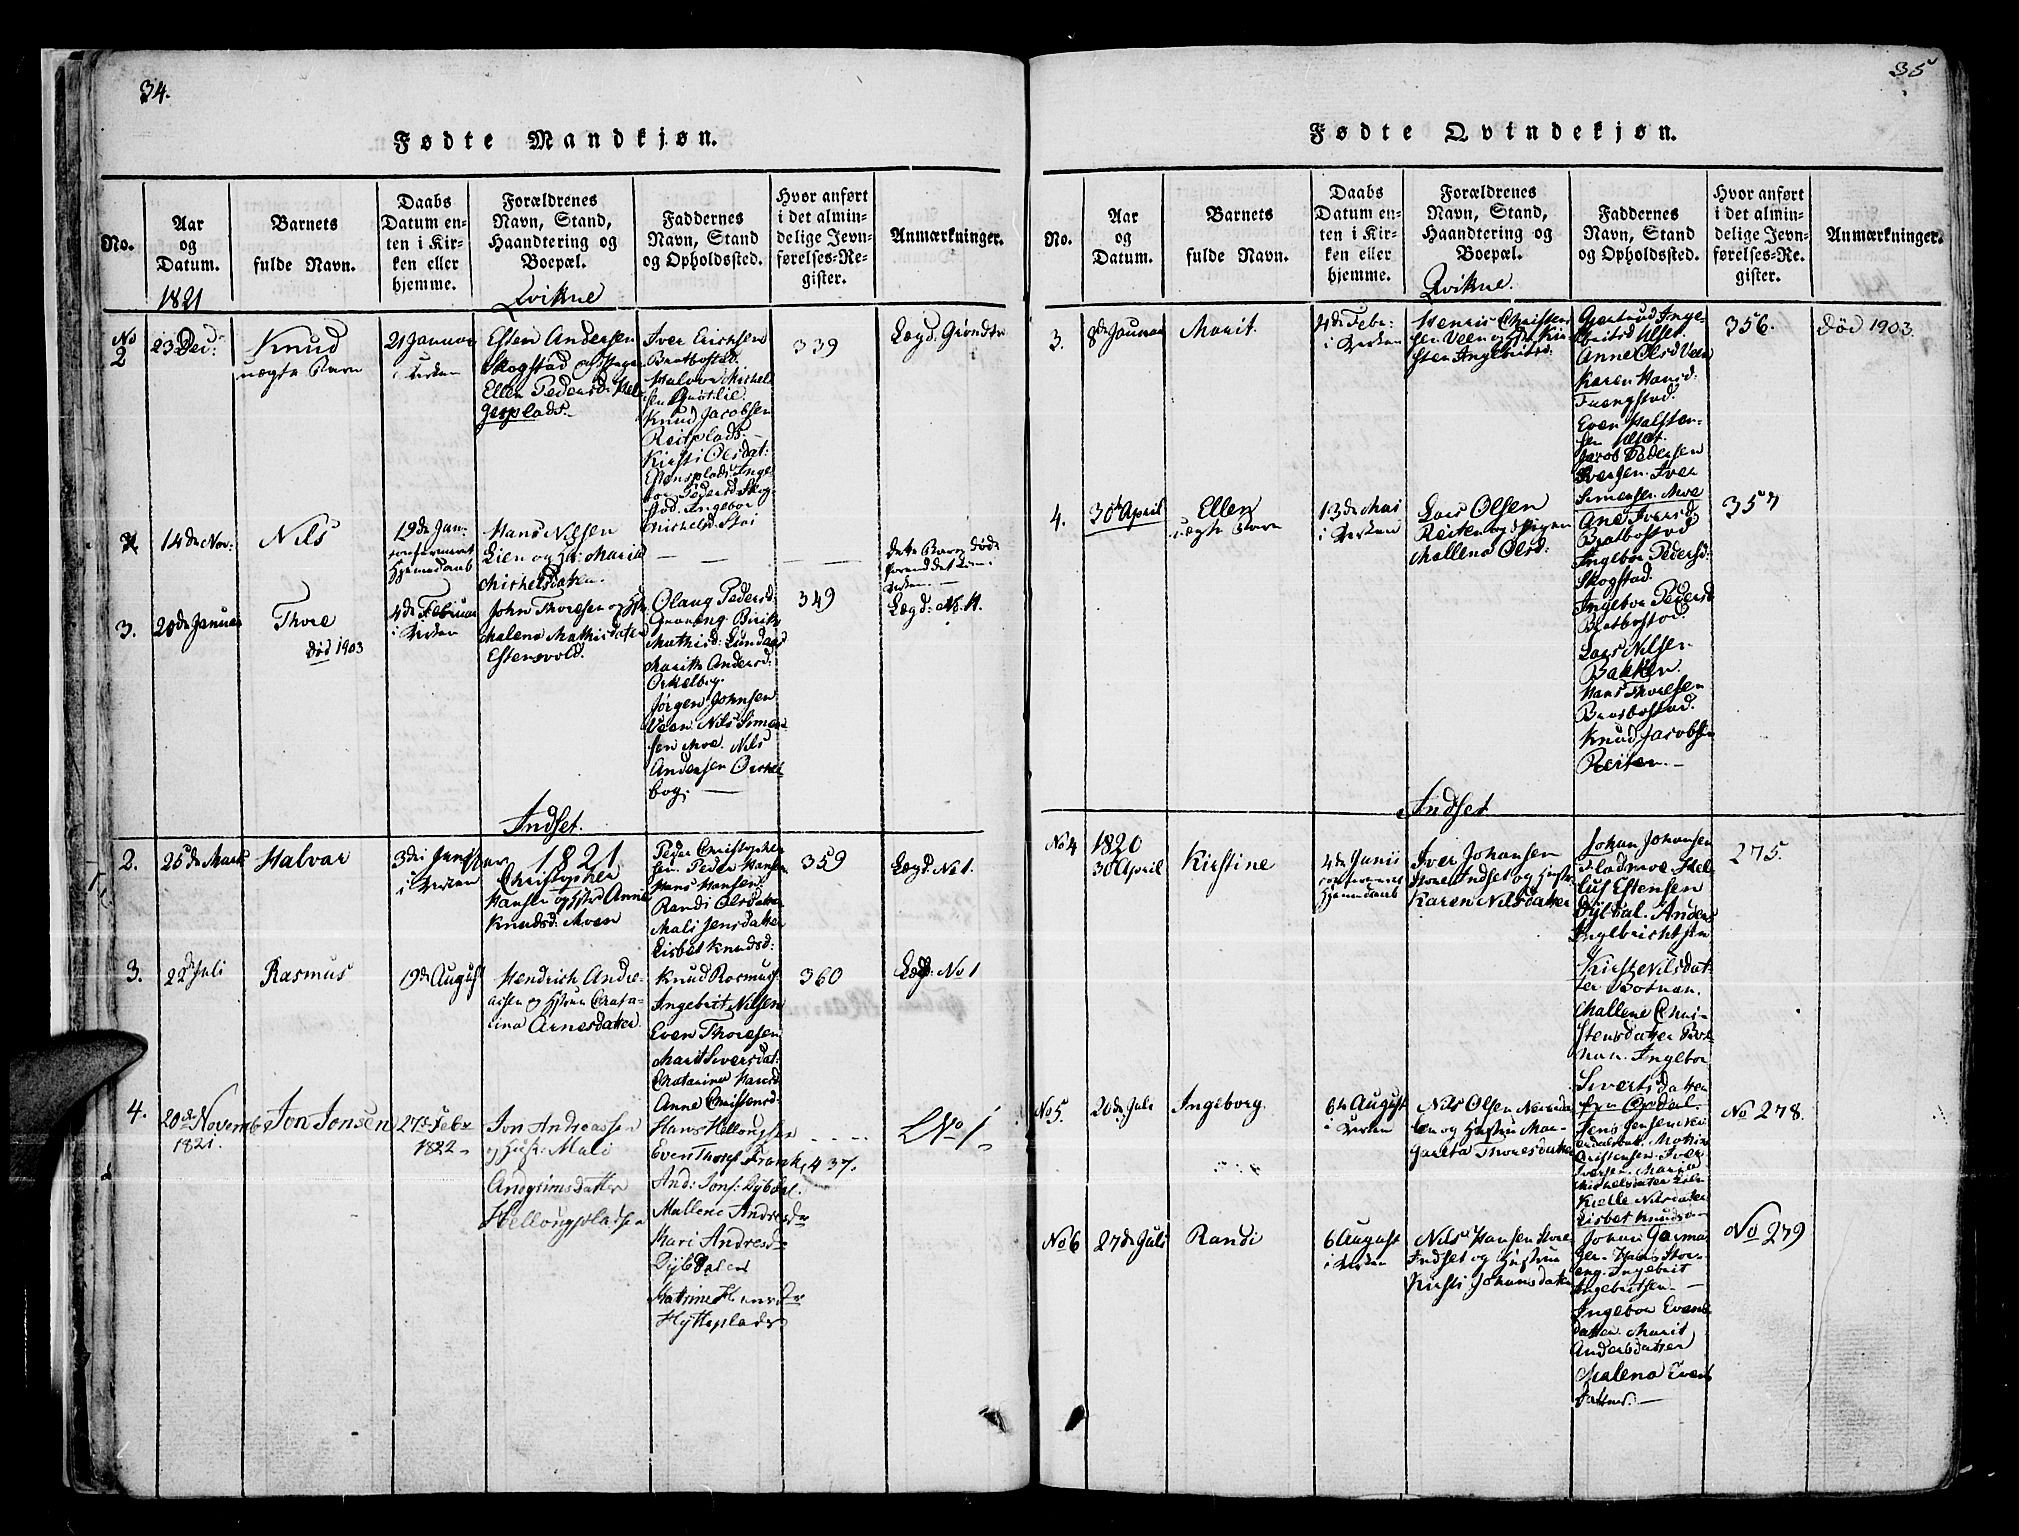 34.
Fødte Mandkjøn.
No.
Aar
og
Datum.
Barnets
fulde Navn.
Daabs
Datum en-
ten i Kir-
ken eller
hjemme.
Forældrenes
Navn, Stand,
Haandtering og
Boepæl.
Faddernes
Navn, Stand
og Opholdssted.
Hvor anført
i det almin-
delige Jevn-
førelses-Re-
gister.
Anmærkninger.
1821
Qvikne
No
2
23 Dec:
Knud
uægte Barn
21 Januar
i Kirken
Esten Andersen
Skogstad og Pigen
Ellen Pedersd: Hel-
gesplads.
Iver Erichsen
Bratbostad.
Halvor Michel
sen Grøtlie.
Knud Jacobsen
Reitplads.
Kirsti Olsdat:
Estensplads: Inge
bor Pedersd Skog
stad. Ingebor
Michelsd Stai
339
Lægd. Grøndtr
14de Nov:
Nils
19de Jan:
confirmeret
Hjemedaab
Hans Nilsen
Lien og H: Maria
Michelsdatter.
dette Barn døde
forend det kom i
Kirken.
3.
20de Januar
Thore
død 1903
4de Februar
i Kirken
John Thoresen og Hstr
Malena Mathisdatter
Estensvold.
Olaug Pedersd:
Mathisd: Lundaas
Marith Andersd:
Orkelbog.
Jørgen Johnsen
Veen. Nils Simon
sen Moe. Nils
Andersen Orkel
bog.
349
Lægd: No. 11.
Indset.
2.
25de Marts
Halvar
3die Junij
i Kirken
1821
Christopher
Hansen og Hstr Anne
Knudsd: Moen
Peder Christopher
sen. Peder Hansen
Hans Hansen.
Randi Olsdatter
Mali Jensdatter
Lisbet Knudsd:
359
Lægd: No 1.
3.
22de Juli
Rasmus
19de August
Hendrich Andre-
assen og Hstrue Cata-
rina Arnesdatter.
Knud Rasmus
Ingebrit Nilsen
Even Thoresen
Marit Siversdat:
Chatarina Hansd
Anne Christensd:
360
Lægd: No 1
4.
20de Novemb
1821.
Jon Jonsen
27de Febr
1822
Jon Andreassen
og Hustr: Mali
Andgrimsdatter
Hellougspladsen
Hans Hellougsen
Even Thores Frank
And: Jons: Dybdal.
Mallene Andresdr
Mari Andresdr
Dybdalen
Katrine Hansdr
Hytteplads
437.
L No 1
35
Fødte Qvindekjøn.
No.
Aar
og
Datum.
Barnets
fulde Navn.
Daabs
Datum en-
ten i Kir-
ken eller
hjemme.
Forældrenes
Navn, Stand,
Haandtering og
Boepæl.
Faddernes
Navn, Stand
og Opholdssted.
Hvor anført
i det almin-
delige Jevn-
førelses-Re-
gister.
Anmærkninger.
Qvikne.
3.
8de Januar
Marit.
4de Febr:
i Kirken
Henric Christen
sen Veen og Hstr Kir
sten Ingebritsd:
Gjertrud Inge-
britsd Utset
Anne Olsd Veen
Karen Hansd:
Frengstad.
Even Halsten-
sen Utset.
Jacob Pedersen
Iversen. Iver
Simensen Moe
356.
død 1903.
4.
30te April
Ellen
uægte Barn
13de Mai
i Kirken
Lars Olsen
Reiten og Pigen
Mallena Olsd:
Ane Iversd
Bratbostad
Ingebor Pedersd:
Skogstad.
Ingebor Pedersd
Bratbostad.
Lars Nilsen
Bakken.
Hans Thoresen
Bratbostad.
Knud Jacobsen
Reiten.
357
Indset
No 4
1820
30 April
Kirstine
4de Junii
confirmeret
Hjemmedaab
Iver Johansen
Store Indset og Hustr
Karen Nilsdatter
Johan Johansen
Fladmoe. Hel-
luf Estensen
Dybdal. Anders
Ingelbrichtsen
Kirste Nilsdat-
ter Botnan.
Mallene Chri-
stensdatter Bot-
nan. Ingebor
Sivertsdatter
Opdal.
275.
No 5.
20de Juli
Ingeborg.
6te August
i Kirken
Nils Olsen
og Hustru Mar-
gareta Thoresdatter
Jens Jensen
Christensen. Iver
Iversen. Maria
Michelsdatter
Kielle Nilsdatter
Lisbet Knudsen
No 278.
No 6
27de Juli
Randi
6 August
i Kirken
Nils Hansen Store
Indset og Hustrue
Kirsti Johansdatter
Johan Garma
ger. Hans Stor-
eng. Ingebrit
Ingebritsen.
Ingebor Evens
datter. Marit
Andersdatter
Malena Evens
datter.
No 279